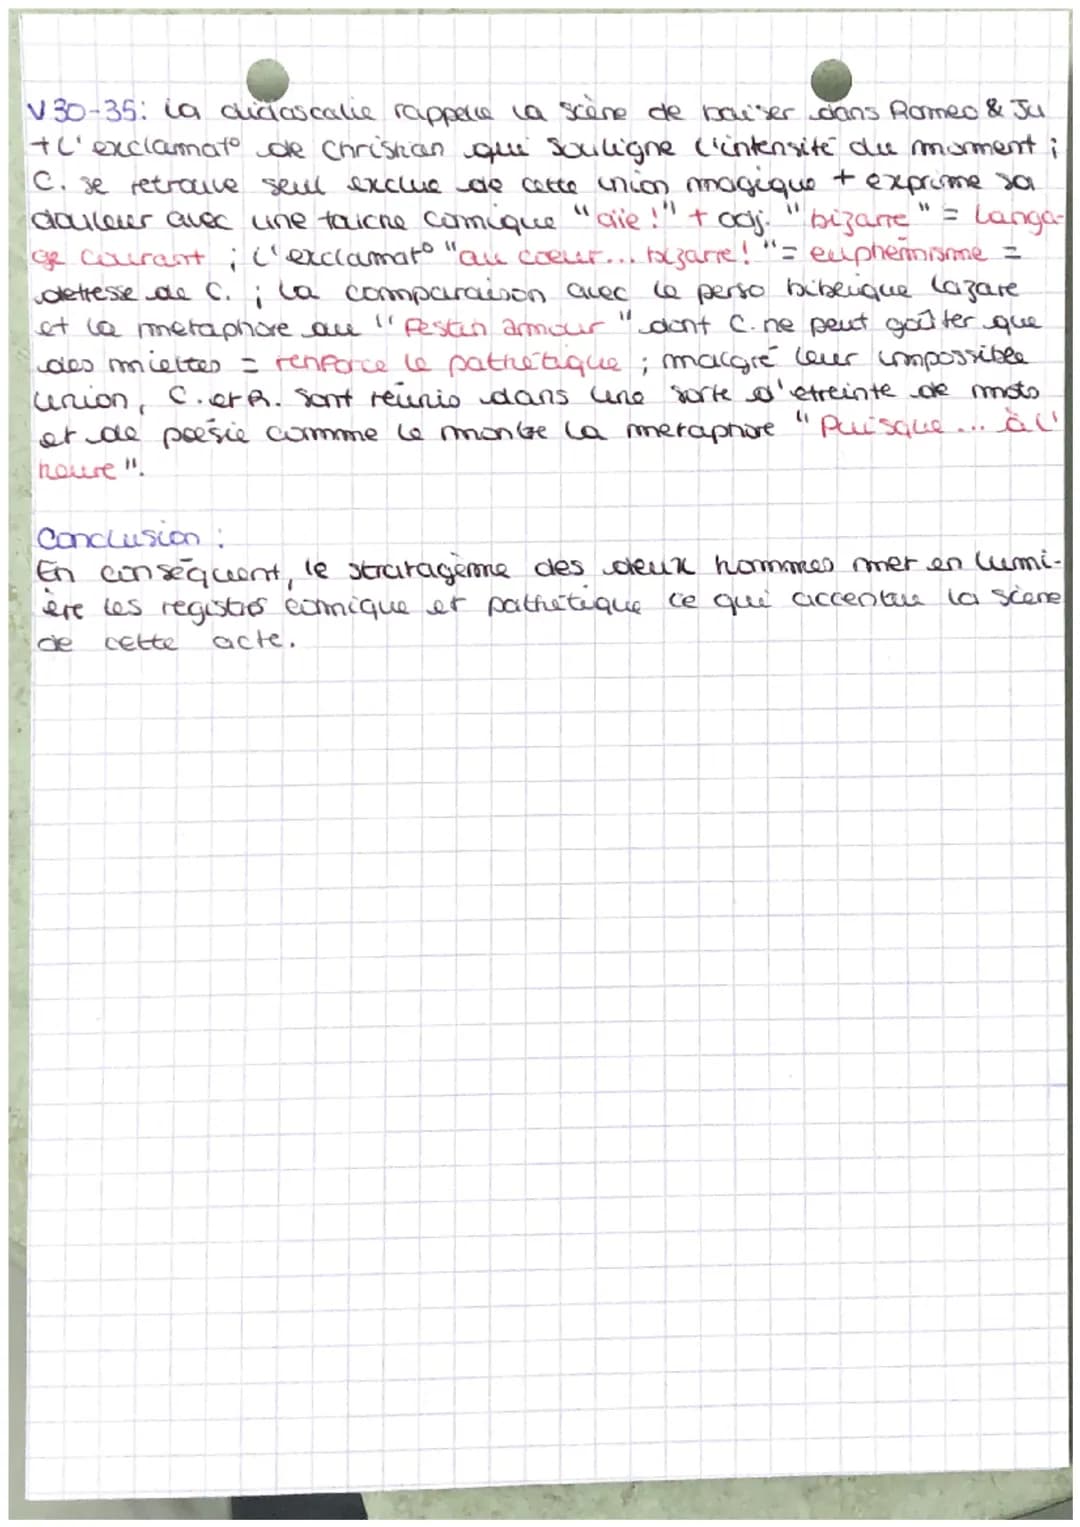 V 30-35: la didascalie rappelle la scène de baiser dans Romeo & Ju
+ l'exclamat° de Christian qui souligne l'intensité du moment ;
C. se retrouve seul exclue de cette union magique + exprime sa
douleur avec une touche comique "aïe !" + adj. "bizarre" = langa-
ge courant ; l'exclamat° "au coeur... bizarre ! "= euphémisme =
detresse de C. ; la comparaison avec le perso biblique Lazare
et la metaphore au "festin amour" dont C. ne peut goûter que
des miettes = renforce le pathétique ; malgré leur impossible
union, C. et R. sont réunis dans une sorte d'etreinte de mots
et de poésie comme le montre la metaphore "Puisque ... à l'
heure".
Conclusion :
En conséquent, le stratagème des deux hommes met en lumi-
ère les registres comique et pathétique ce qui accentue la scène
de cette acte.